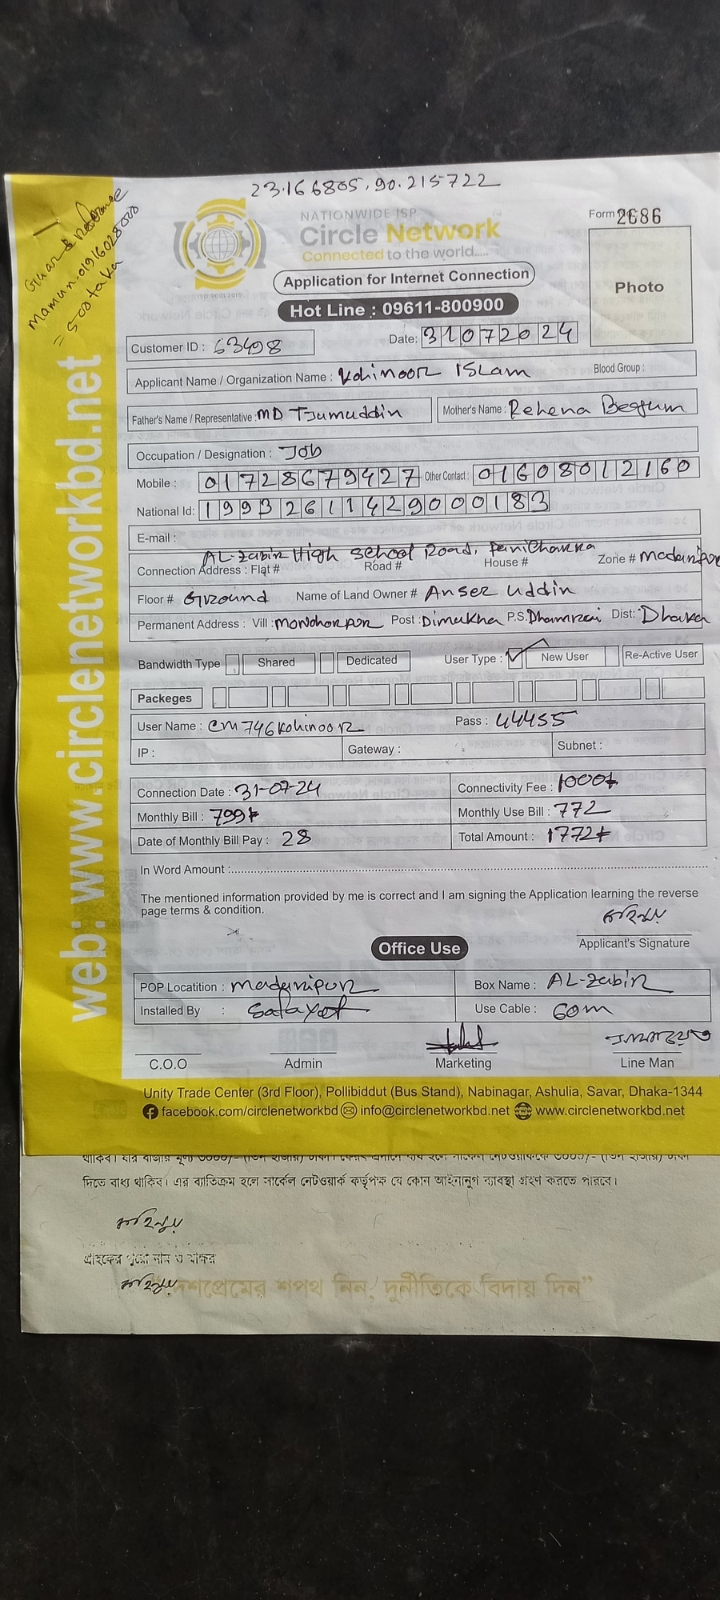 23.166805, 90.215722
NATIONWIDE ISP
Circle Network
Connected to the world....
Form 2686
Photo
Application for Internet Connection
Hot Line : 09611-800900
Customer ID : 63498
Date: 31072024
Applicant Name / Organization Name : Kohinoor Islam Blood Group :
Father's Name / Representative : MD Tjumuddin Mother's Name : Rehena Begum
Occupation / Designation : Job
Mobile : 01728679427 Other Contact : 01608012160
National Id: 19932611429000183
E-mail :
AL-Zabir High School Road, Panichakka
Connection Address : Flat # Road # House # Zone # Madanipur
Floor # Ground Name of Land Owner # Anser Uddin
Permanent Address : Vill : Monohorpor Post : Dimukha P.S. Dhamrai Dist: Dhaka
Bandwidth Type Shared Dedicated User Type : ✓ New User Re-Active User
Packeges
User Name : CM746Kohinoor Pass : 44455
IP : Gateway : Subnet :
Connection Date : 31-07-24 Connectivity Fee : 1000
Monthly Bill : 799 Monthly Use Bill : 772
Date of Monthly Bill Pay : 28 Total Amount : 1772
In Word Amount :
The mentioned information provided by me is correct and I am signing the Application learning the reverse
page terms & condition.
কহিনুর
Applicant's Signature
Office Use
POP Locatition : Madanipur Box Name : AL-Zabir
Installed By : Safayet Use Cable : 60m
C.O.O Admin Marketing Line Man
Unity Trade Center (3rd Floor), Pollibiddut (Bus Stand), Nabinagar, Ashulia, Savar, Dhaka-1344
facebook.com/circlenetworkbd info@circlenetworkbd.net www.circlenetworkbd.net
web: www.circlenetworkbd.net
Mamun: 01916028000
= 500 taka
দিতে বাধ্য থাকিব। এর ব্যতিক্রম হলে সার্কেল নেটওয়ার্ক কর্তৃপক্ষ যে কোন আইনানুগ ব্যবস্থা গ্রহণ করতে পারবে।
কহিনুর
গ্রাহকের পুরো নাম ও স্বাক্ষর
কহিনুর
দেশপ্রেমের শপথ নিন, দুর্নীতিকে বিদায় দিন"